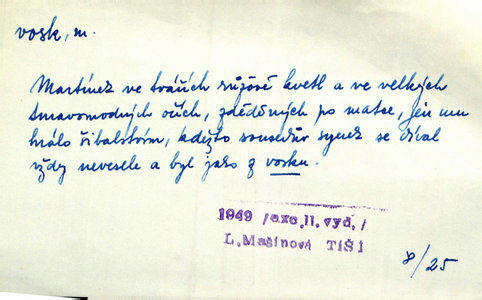 vosk, m.
Martínek ve tvářích růžově kvetl a ve velkých
tmavomodrých očích, zděděných po matce, jen mu
hrálo šibalstvím, kdežto sousedův synek se díval
vždy nevesele a byl jako z vosku.
1949 /exc.II.vyd./
L.Mašínová Tiší
8/25